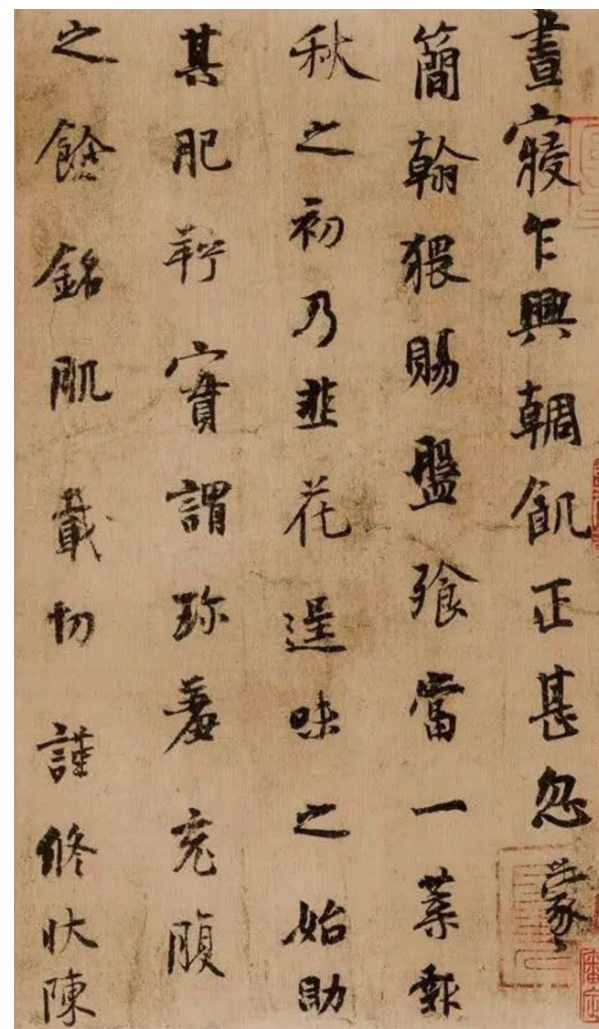 晝寢乍興輖飢正甚忽蒙
簡翰猥賜盤飧當一葉報
秋之初乃韭花逞味之始助
其肥羜實謂珍羞充腹
之餘銘肌載切謹修狀陳